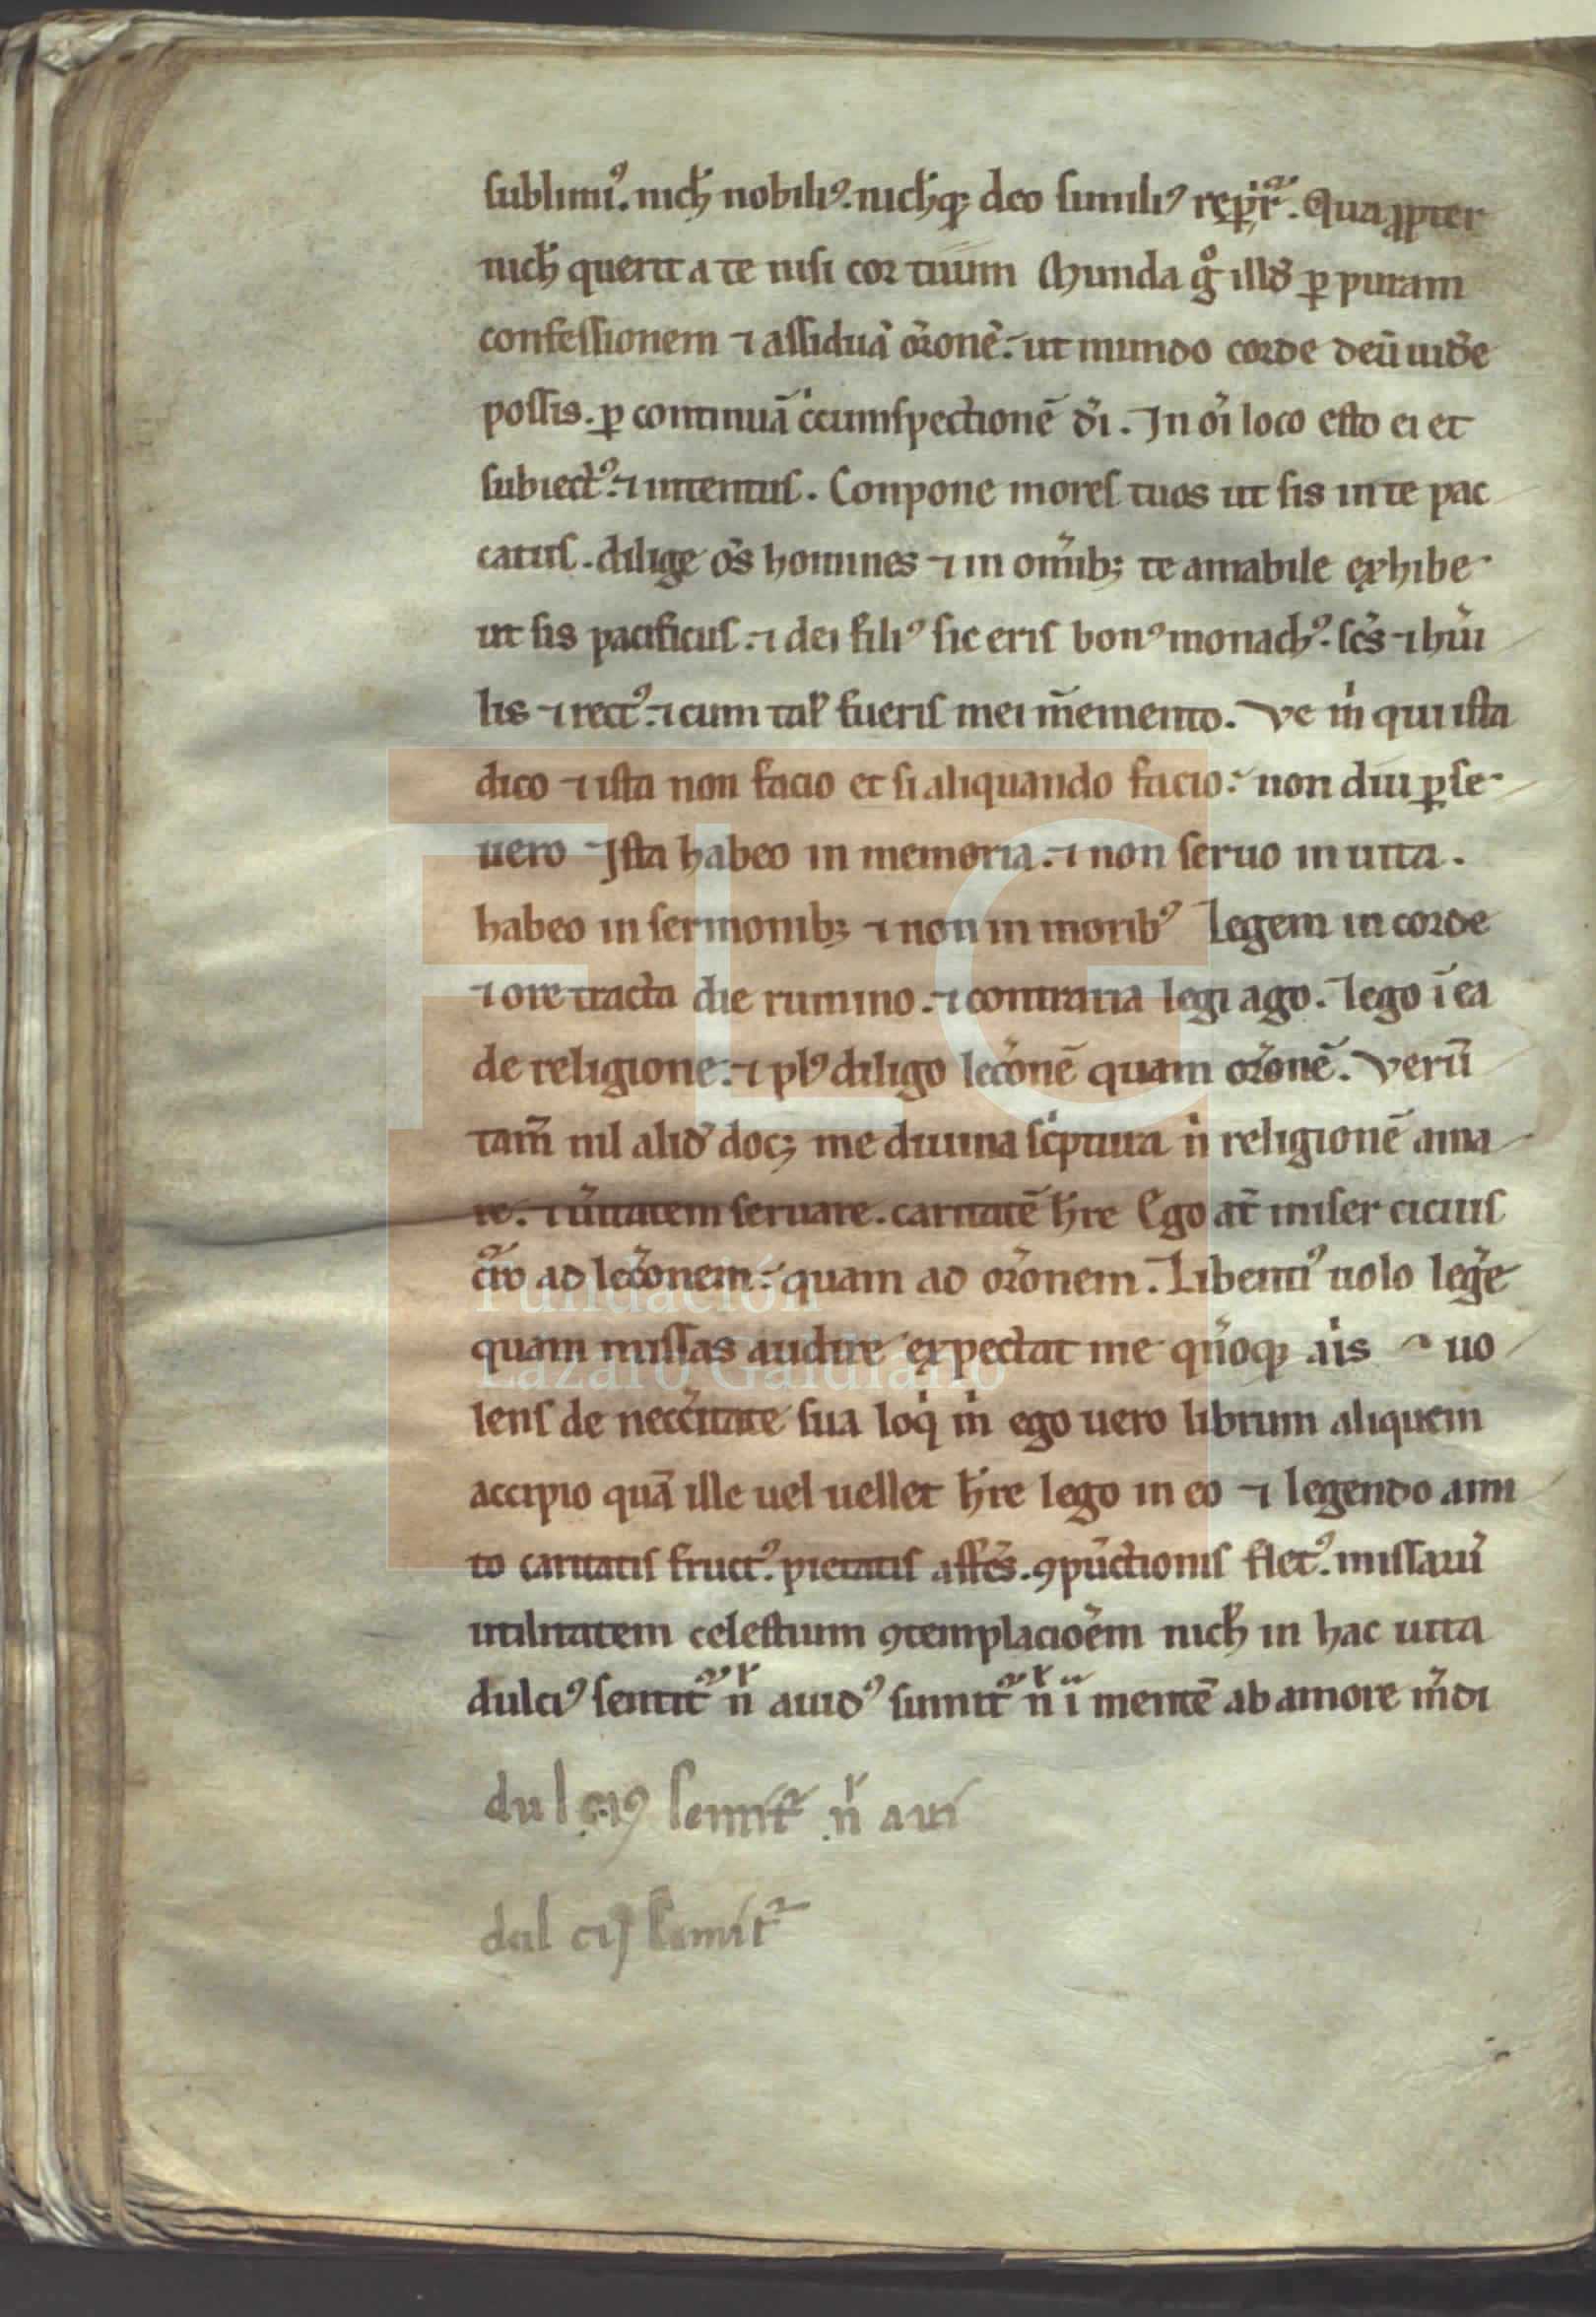 sublimiꝰ. nich̄ nobiliꝰ. nich̄qꝫ deo similiꝰ rep̄it᷑. Qua ꝓpter
nich̄ querit a te nisi cor tuum Munda gͦ illđ ꝑ puram
confessionem ⁊ assiduā or̄onē. ut mundo corde deū uiđe
possis. ꝑ continuā c̓cumspectionē d̄i. In oī loco esto ei et
subiectꝰ. ⁊ intentus. Conpone mores tuos ut sis in te pac
catus. dilige ōs homines ⁊ in om̄ibꝫ te amabile exhibe
ut sis pacificus. ⁊ dei filiꝰ sic eris bonꝰ monachꝰ. sc̄s ⁊ hūi
lis ⁊ rectꝰ. ⁊ cum tal̓ fueris mei m̄emento. Ve m̓ qui ista
dico ⁊ ista non facio et si aliquando facio. non diu ꝑse
uero Ista habeo in memoria. ⁊ non seruo in uita.
habeo in sermonibꝫ ⁊ non in moribꝰ Legem in corde
⁊ ore tracta die rumino. ⁊ contraria legi ago. Lego ī ea
de religione. ⁊ plꝰ diligo lec̄onē quam or̄onē. Verū
tam̄ nil aliđ docꝫ me diuina sc̓ptura n̓ religionē ama
re. ⁊ ūitatem seruare. caritatē h̄re Ego at̄ miser cicius
c̄ro ad lec̄onem. quam ad or̄onem. Libentiꝰ uolo leḡe
quam missas audire expectat me qn̄oqꝫ aīs uo
lens de necc̄itate sua loq̓ m̓ ego uero librum aliquem
accipio quā ille uel uellet h̄re lego in eo ⁊ legendo ami
to caritatis fructꝰ. pietatis affc̄s. ꝯpūctionis fletꝰ. missaꝝ
utilitatem celestium ꝯtemplacioēm nich̄ in hac uita
dulciꝰ sentit᷑ n̓ auidꝰ sumit᷑ n̓ ī mentē ab amore m̄di
dulciꝰ sentit᷑ n̓ aui
dulciꝰ sentit᷑
FLG
Fundación
Lázaro Galdiano